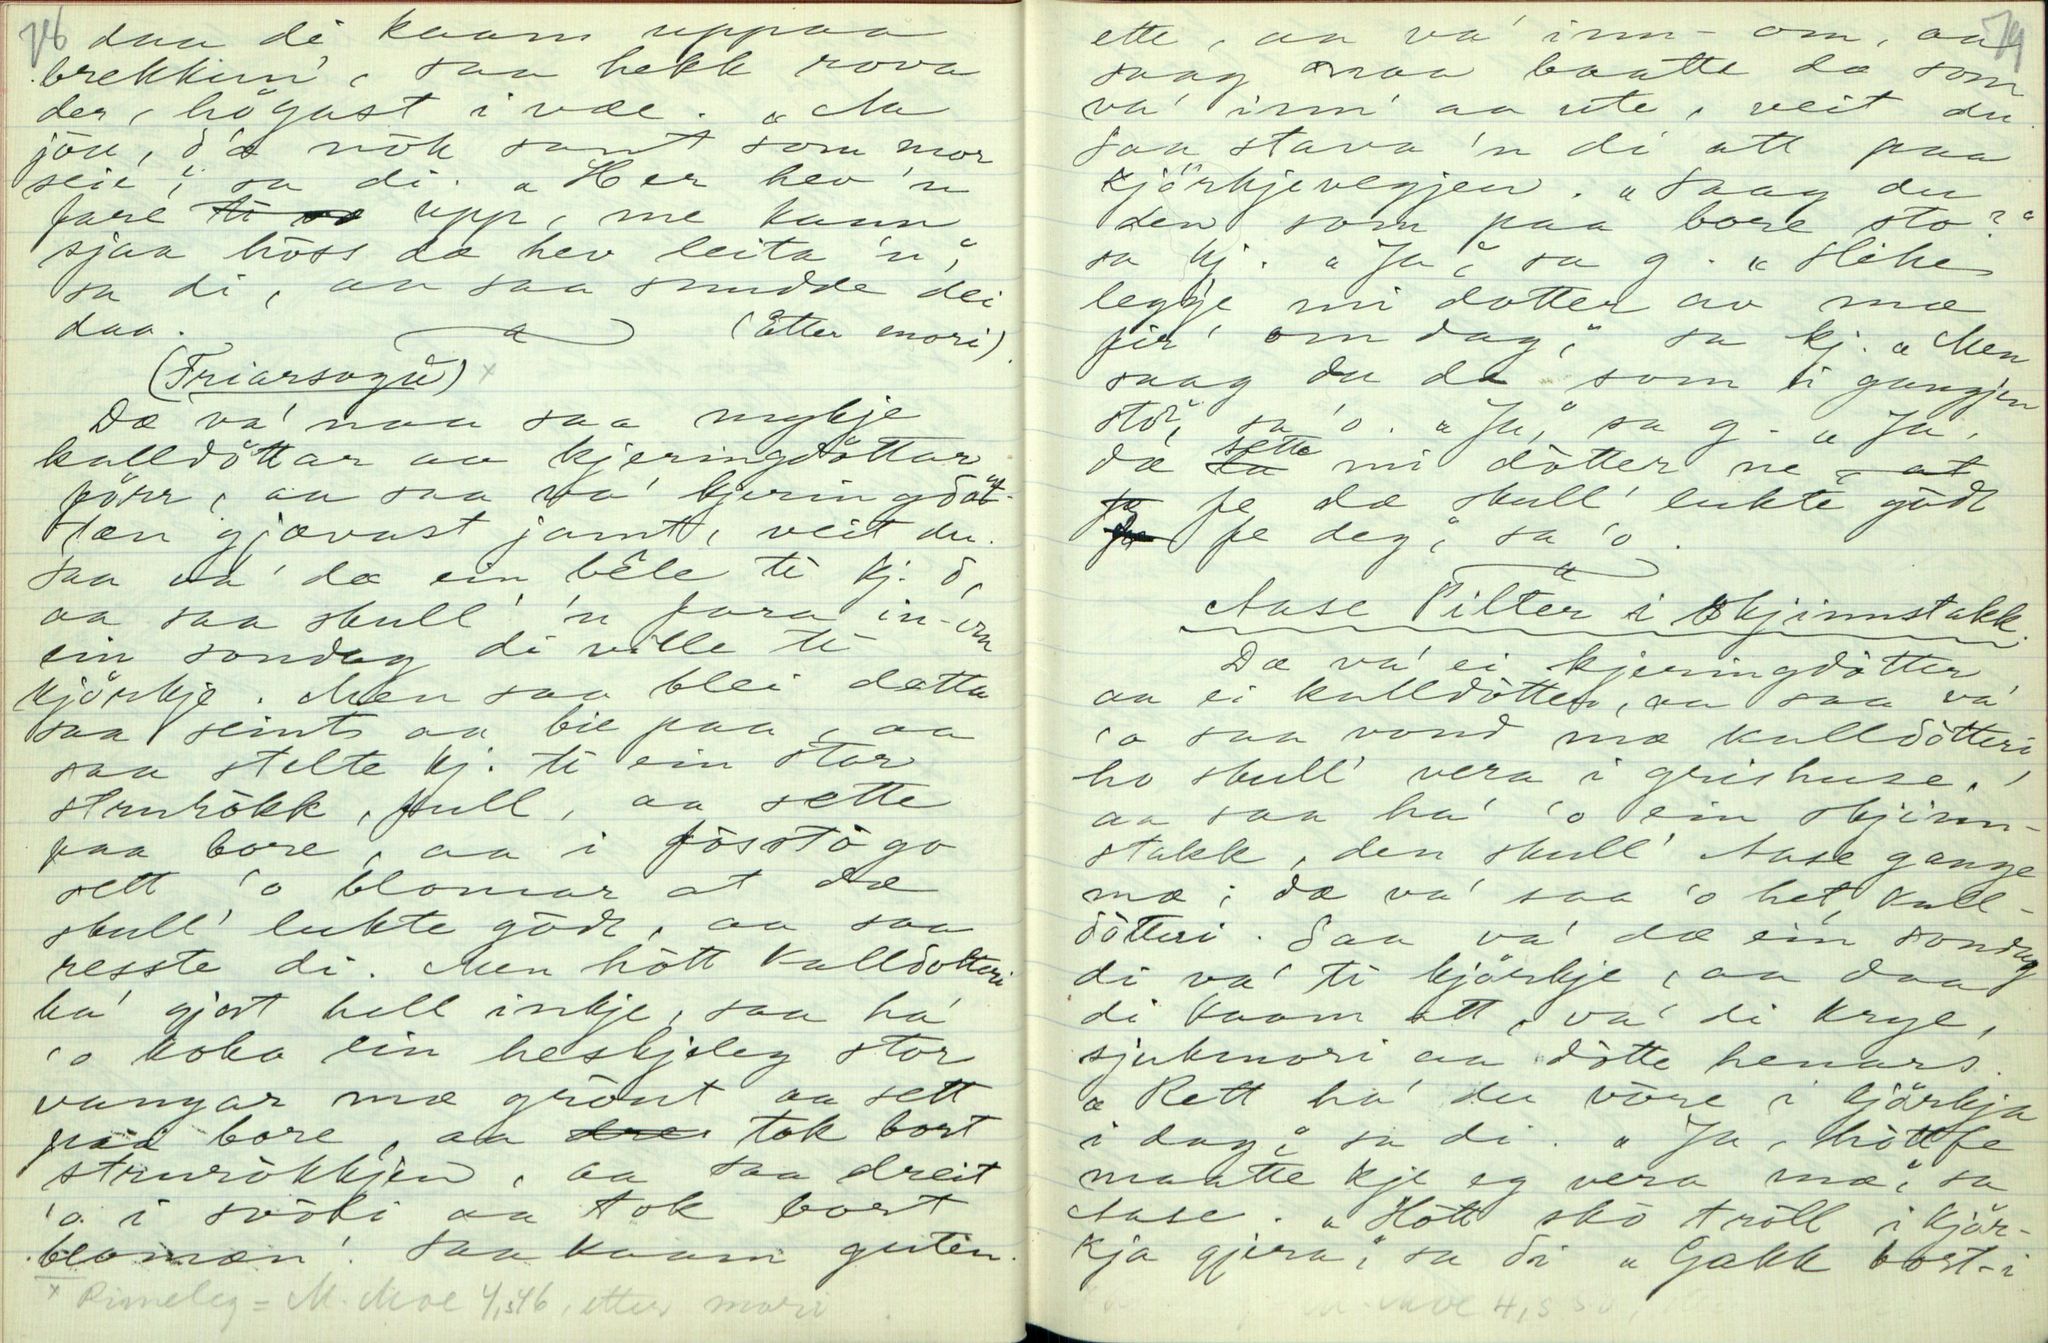 78
daa di kaam uppaa
brekkun', saa hekk rova
der, högast i væe. „Aa
jöu, d'æ nök sant som mor
seie", sa di. „Her hev 'n
fare upp, me kann
sjaa höss dæ hev leita 'n",
sa di, aa saa snudde dei
daa. (Etter mori).
(Friarsogŭ) x
Dæ va' naa saa mykje
kalldöttar aa kjeringdöttar
förr, aa saa va' kjeringdöt-
tæn gjævast jamt, veit du.
Saa va' dæ ein bêle te kj. d,
aa saa skull' 'n fara in-om
ein sondag di ville te
kjörkje. Men saa blei detta
saa seint aa bie paa, aa
saa stelte kj. te ein stor
strurökk, full, aa sette
paa bore, aa i fösstögo
sett 'o blomar at dæ
skull' lukte gödt, aa saa
resste di. Men hött kalldotteri
ha' gjort hell inkje, saa ha'
'o koka ein heskjeleg stor
vangar mæ grönt aa sett
paa bore, aa tok bort
strurökkjen, aa saa dreit
'o i svöli aa tok bort
blomæn'. Saa kaam guten.
x Rimeleg = M. Moe 4, s 46, etter mori
79
ette, aa va' inn-om, aa
saag naa baatte dæ som
va' inni aa ute, veit du.
Saa stava 'n di att paa
kjörkjevegjen. „Saag du
den som paa bore sto?"
sa kj. „Ja", sa g. „Slike
legge mi dotter av mæ
fir' om dag", sa kj. „Men
saag du dæ som i gangjen
sto", sa 'o. „Ja", sa g. „Ja,
dæ sette mi dötter ne
fe dæ skull' lukte gödt
fe deg", sa 'o.
Aase Pilter i skjinnstakk.
Dæ va' ei kjeringdötter
aa ei kalldötter, aa saa va'
'o saa vond mæ kalldötteri,
ho skull' vera i grishuse,
aa saa ha' 'o ein skjinn-
stakk, den skull' Aase gange
mæ; dæ va' saa 'o het, kall-
dötteri. Saa va' dæ ein sondag
di va' te kjörkje, aa daa
di kaam att, va' di krye,
sjukmori aa dötte henars.
„Rett ha' du vöre i kjörkja
i dag", sa di. „Ja, höttfe
maatte kje eg vera mæ", sa
Aase. „Hött skö tröll i kjör-
kja gjera", sa di „Gakk bort-i